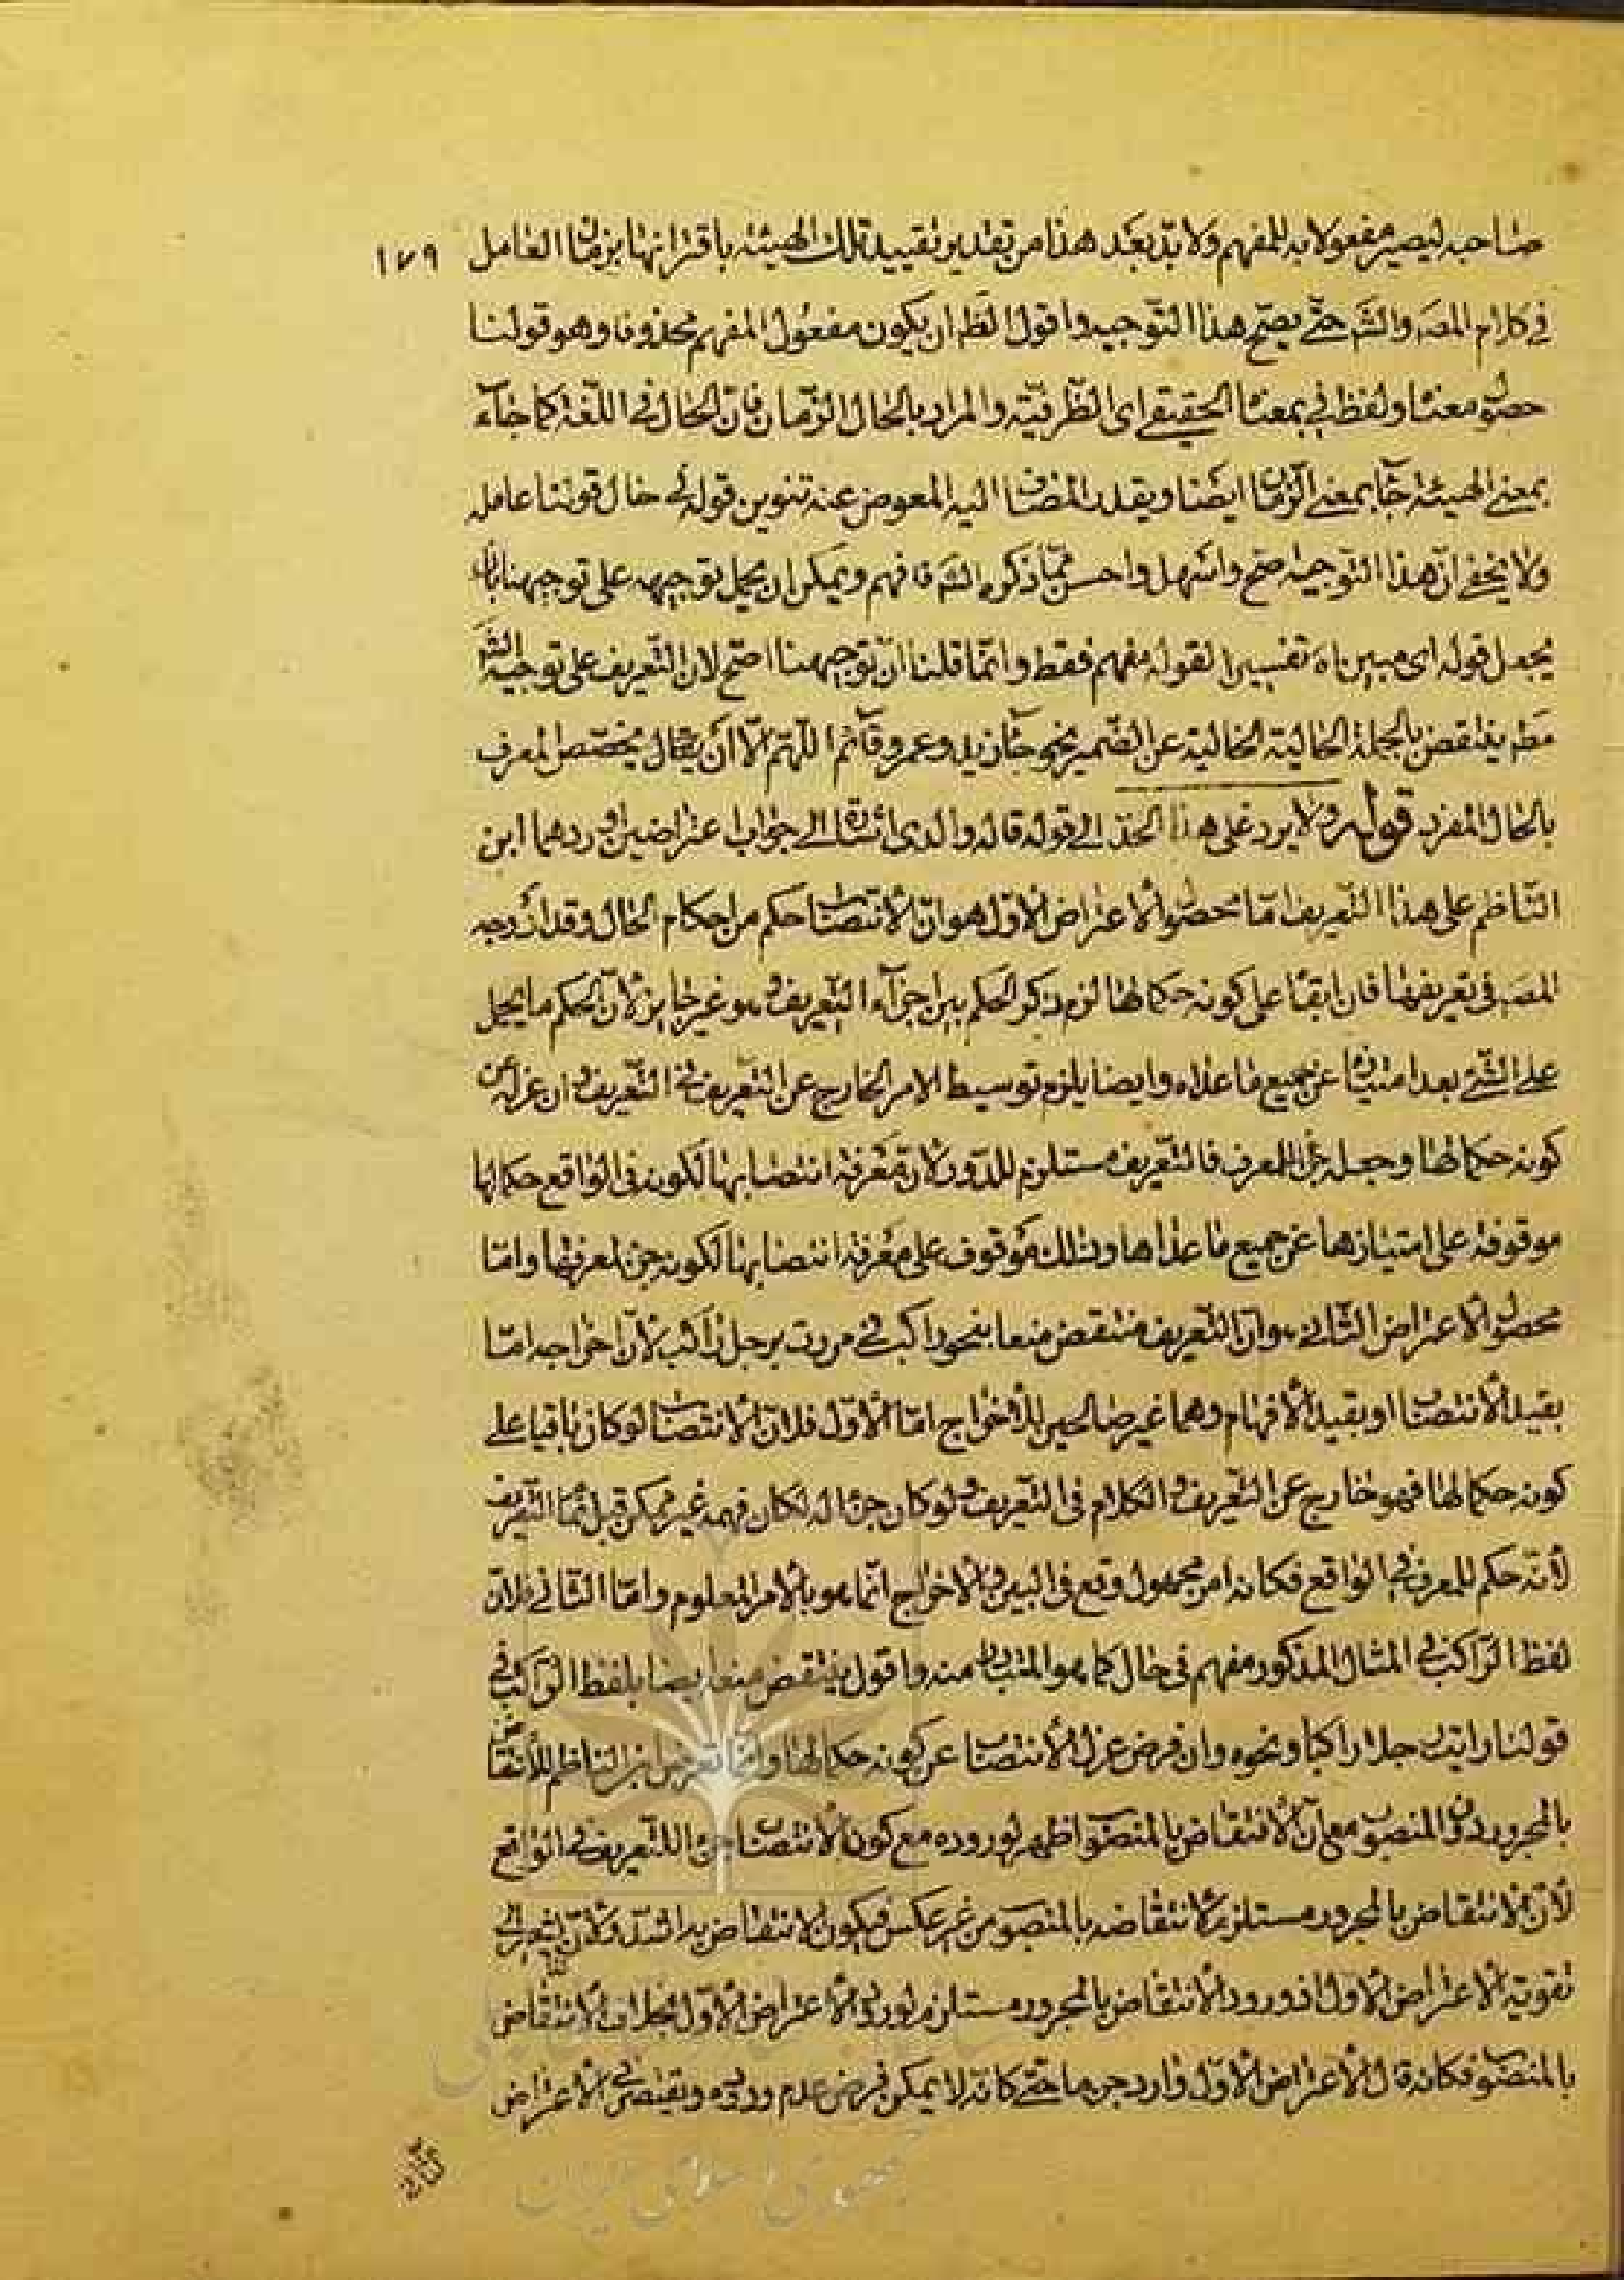 صاحبه ليصير مفعولا به للمفهم ولا بد بعد هذا من تقدير تقييد تلك الهيئة باقترانها بزمان العامل ١٧٩
في كلام المصـ والشـ حتى يصح هذا التوجيه واقول الظـ ان يكون مفعول المفهم محذوفا وهو قولنا
حصول معنا ولفظ في بمعناه الحقيقي اى الظرفية والمراد بالحال الزمان فان الحال في اللغة كما جاء
بمعنى الهيئة جاء بمعنى الزمان ايضا ويقدر المضاف اليه المعوض عنه تنوين قوله في حال قولنا عامله
ولا يخفى ان هذا التوجيه اصح واسهل واحسن مما ذكره الشـ فافهم ويمكن ان يحمل توجيهه على توجيهنا بان
يجعل قوله اى مبين اه تفسيرا لقوله مفهم فقط وانما قلنا ان توجيهنا اصح لان التعريف على توجيه الشـ
مطـ ينتقض بالجملة الحالية الخالية عن الضمير نحو جاء زيد وعمرو قائم اللهم الا ان يقال يختص المعرف
بالحال المفرد قوله ولا يرد على هذا الحد الى قوله قاله والدى اشارة الى جواب اعتراضين اوردهما ابن
الناظم على هذا التعريف اما محصول الاعتراض الاول هو ان الانتصاب حكم من احكام الحال وقد ادرجه
المصـ في تعريفها فان ابقا على كونه حكما لها لزم ذكر الحكم بين اجزاء التعريف وهو غير جايز لان الحكم ما يحمل
على الشئ بعد امتيازه عن جميع ما عداه وايضا يلزم توسيط الامر الخارج عن التعريف في التعريف وان عزله عن
كونه حكما لها وجعله جزأ للمعرف فالتعريف مستلزم للدور لان معرفة انتصابها لكونه في الواقع حكما لها
موقوفة على امتيازها عن جميع ما عداها وذلك موقوف على معرفة انتصابها لكونه جزء لمعرفها واما
محصول الاعتراض الثاني هو ان التعريف منتقض منعا بنحو راكب في مررت برجل راكب لان اخراجه اما
بقيد الانتصاب او بقيد الافهام وهما غير صالحين للاخراج اما الاول فلان الانتصاب لو كان باقيا على
كونه حكما لها فهو خارج عن التعريف والكلام في التعريف ولو كان جزء له لكان فهمه غير ممكن قبل تمام التعريف
لانه حكم للمعرف في الواقع فكانه امر مجهول وقع في البين والاخراج انما هو بالامر المعلوم واما الثاني فلان
لفظ الراكب في المثال المذكور مفهم في حال كما هو المتبادر منه واقول ينتقض منعا ايضا بلفظ الراكب في
قولنا رايت رجلا راكبا ونحوه وان فرض عزل الانتصاب عن كونه حكما لها وانما تعرض ابن الناظم للانتقاض
بالمجرور دون المنصوب مع ان الانتقاض بالمنصوب اظهر لوروده مع كون الانتصاب جزء للتعريف في الواقع
لان الانتقاض بالمجرور مستلزم لانتقاضه بالمنصوب من غير عكس فيكون الانتقاض به اشد ولان
تقوية الاعتراض الاول اذ ورود الانتقاض بالمجرور مستلزم لورود الاعتراض الاول بخلاف الانتقاض
بالمنصوب فكانه قال الاعتراض الاول وارد جزما حتى كانه لا يمكن فرض عدم وروده الاعتراض